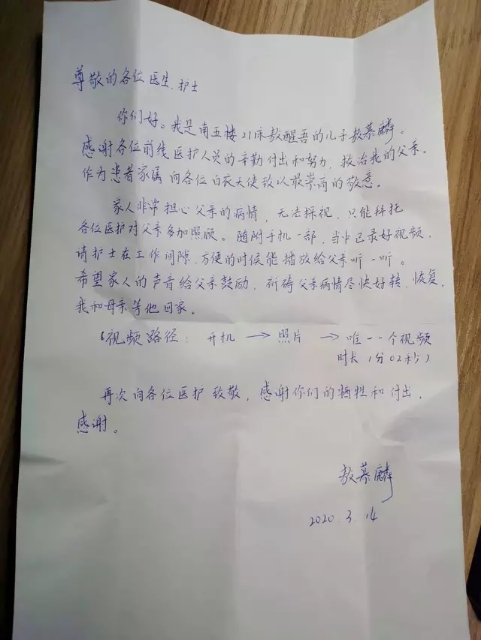 尊敬的各位医生、护士
你们好。我是南五楼21床敖醒吾的儿子敖慕麟。
感谢各位前线医护人员的辛勤付出和努力，救治我的父亲，
作为患者家属向各位白衣天使致以最崇高的敬意。
家人非常担心父亲的病情，无法探视，只能拜托
各位医护对父亲多加照顾。随附手机一部，当中已录好视频，
请护士在工作间隙，方便的时候能播放给父亲听一听。
希望家人的声音给父亲鼓励，祈祷父亲病情尽快好转、恢复，
我和母亲等他回家。
视频路径：开机 → 照片 → 唯一一个视频
时长（分02秒）
再次向各位医护致敬，感谢你们的牺牲和付出，
感谢。
敖慕麟
2020.3.14